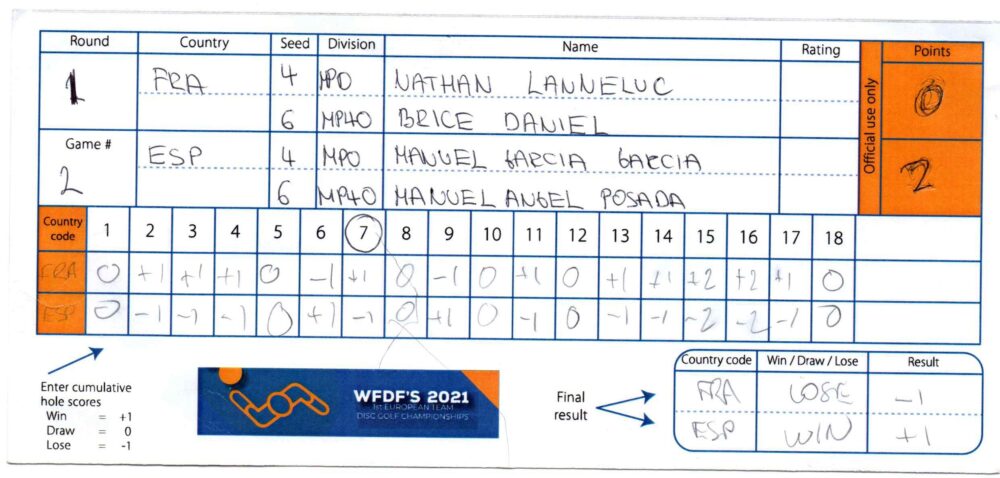 Round Country Seed Division Name Rating Official use only Points
1 FRA 4 MPO NATHAN LANNELUC 0
6 MP40 BRICE DANIEL
Game #
2 ESP 4 MPO MANUEL GARCIA GARCIA 2
6 MP40 MANUEL ANGEL POSADA
Country code 1 2 3 4 5 6 7 8 9 10 11 12 13 14 15 16 17 18
FRA 0 +1 +1 +1 0 -1 +1 0 -1 0 +1 0 +1 +1 +2 +2 +1 0
ESP 0 -1 -1 -1 0 +1 -1 0 +1 0 -1 0 -1 -1 -2 -2 -1 0
Enter cumulative
hole scores
Win = +1
Draw = 0
Lose = -1
WFDF'S 2021
1st EUROPEAN TEAM
DISC GOLF CHAMPIONSHIPS
Final
result
Country code Win / Draw / Lose Result
FRA LOSE -1
ESP WIN +1